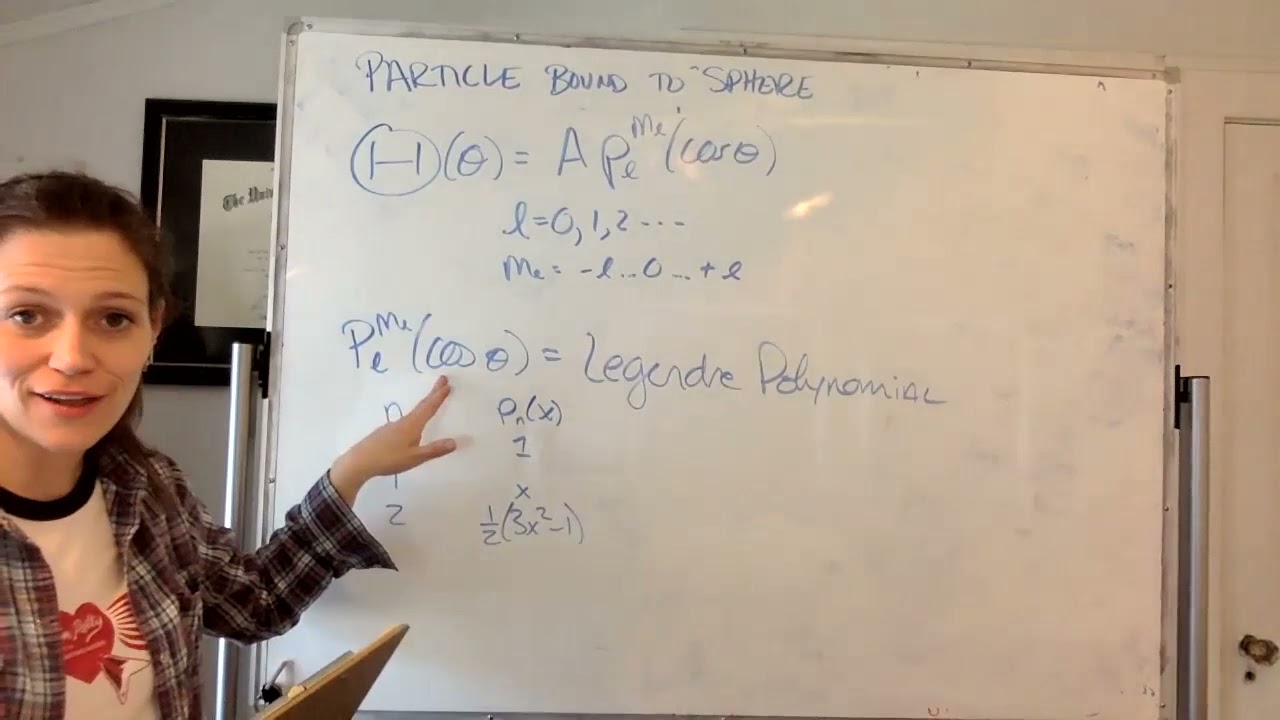 PARTICLE BOUND TO SPHERE
Ⓗ(θ) = A Pₗ^mₗ(cosθ)
l=0,1,2 ...
mₗ = -l...0...+l
Pₗ^mₗ(cosθ) = Legendre Polynomial
n Pₙ(x)
1
1 x
2 ½(3x²-1)
The